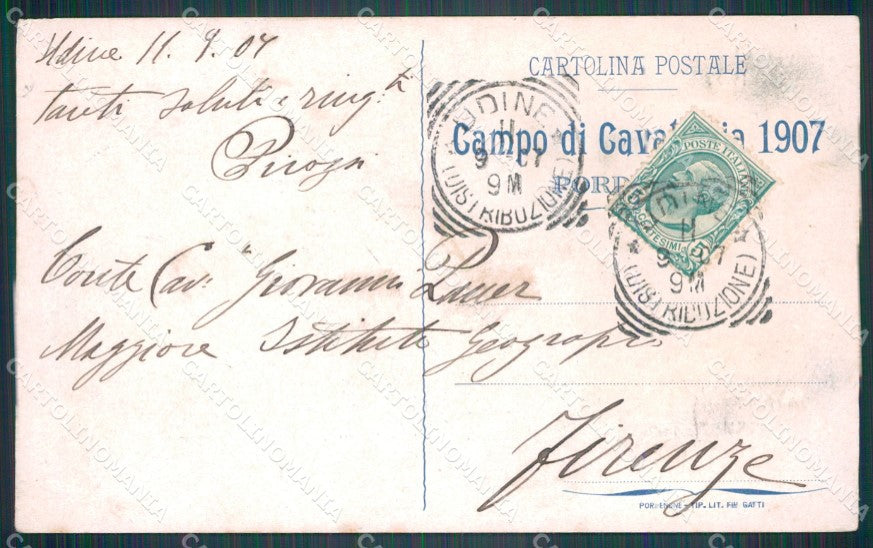 Udine 11. 9. 07
tanti saluti e ring.ti
CARTOLINA POSTALE
Campo di Cavalleria 1907
PORD
UDINE
11
9 07
9M
(DISTRIBUZIONE)
POSTE ITALIANE
CENTESIMI
11
9 07
9M
(DISTRIBUZIONE)
Conte Cav. Giovanni
Maggiore Istituto Geografi
Firenze
PORDENONE - TIP. LIT. FLLI GATTI
CARTOLINOMANIA